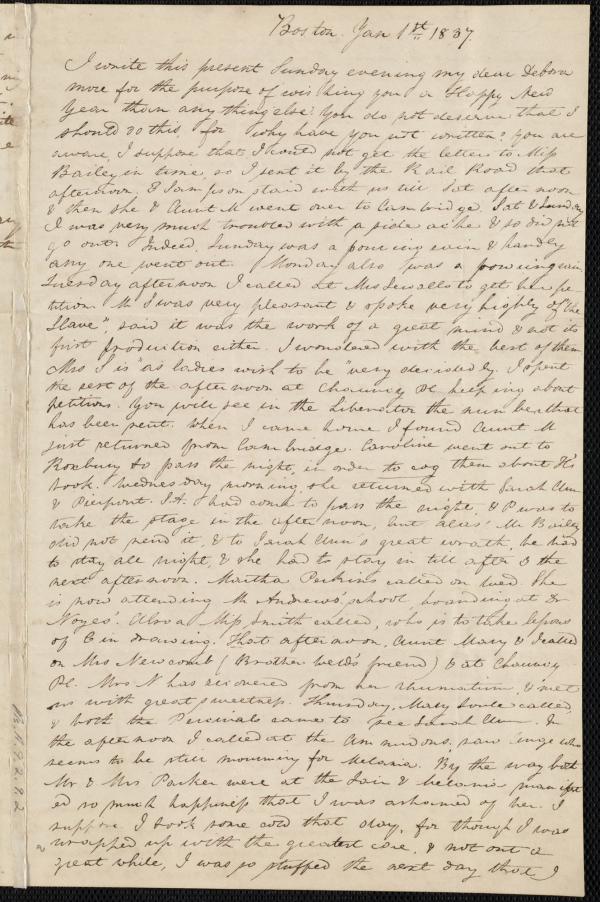 Boston. Jan 1st 1837.
I write this present Sunday evening my dear Debora
more for the purpose of wishing you a Happy New
Year than any thing else. You do not deserve that I
should do this, for why have you not written? You are
aware, I suppose that I could not get the letters to Miss
Bailey in time, so I sent it by the Rail Road that
afternoon. E Sampson staid with us till Sat afternoon
& then she & Aunt M went over to Cambridge. Sat & Sunday
I was very much troubled with a side ache & so did not
go out. Indeed, Sunday was a pouring rain & hardly
any one went out. Monday also was a pouring rain,
Tuesday afternoon I called at Mrs Sewalls to get her pe-
tition. Mr S was very pleasant & spoke very highly of "the
Slave", said it was the work of a great mind & not its
first production either. I wondered with the best of them
Mrs S is "as ladies wish to be" very decidedly. I spent
the rest of the afternoon at Chauncy Pl. keeping about
petitions. You will see in the Liberator the number that
has been sent. When I came home I found Aunt M
just returned from Cambridge. Caroline went out to
Roxbury to pass the night, in order to cog them about H's
book. Wednesday morning she returned with Sarah Ann
& Pierpont. S.A. had come to pass the night, & P was to
take the stage in the afternoon, but alas! Mr Bailey
did not send it, & to Sarah Ann's great wrath, he had
to stay all night, & she had to stay in till after 3 the
next afternoon. Martha Perkins called on Wed. She
is now attending Mr Andrews' school, boarding at Dr
Noyes'. Also a Miss Smith called, who is to take lessons
of C in drawing. That afternoon, Aunt Mary & I called
on Mrs Newcomb (Brother Weld's friend) & at Chauncy
Pl. Mrs N has recovered from her rhumatism, & met
us with great sweetness. Thursday, Mary Soule called,
& both the Percivals came to see Sarah Ann. In
the afternoon I called at the Ammidons, saw Ange who
seems to be still mourning for Melania. By the way both
Mr & Mrs Parker were at the Fair & Melania manifest
ed so much happiness that I was ashamed of her. I
suppose I took some cold that day, for though I was
wrapped up with the greatest care, & not out a
great while, I was so stuffed the next day that I